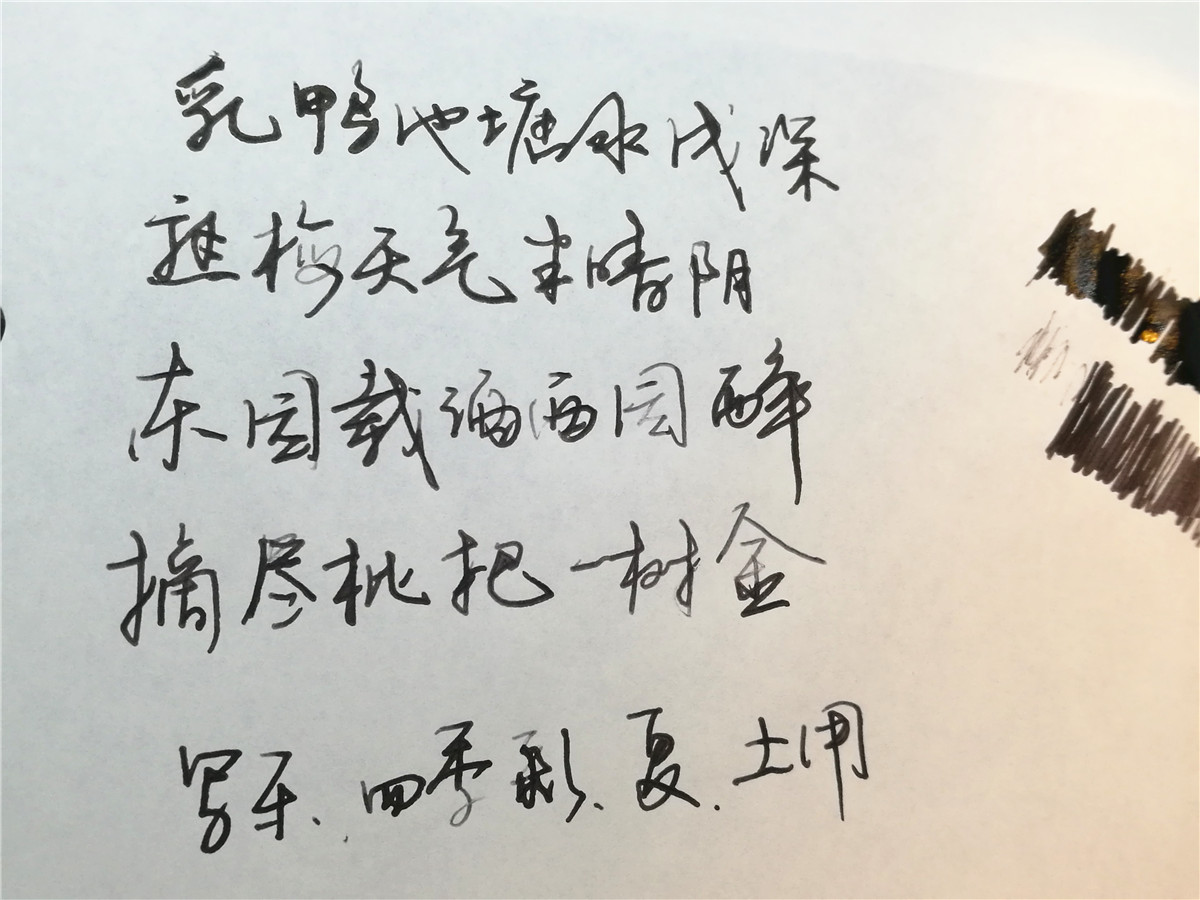 乳鸭池塘水浅深
熟梅天气半晴阴
东园载酒西园醉
摘尽枇杷一树金
写乐.四季彩.夏.土用